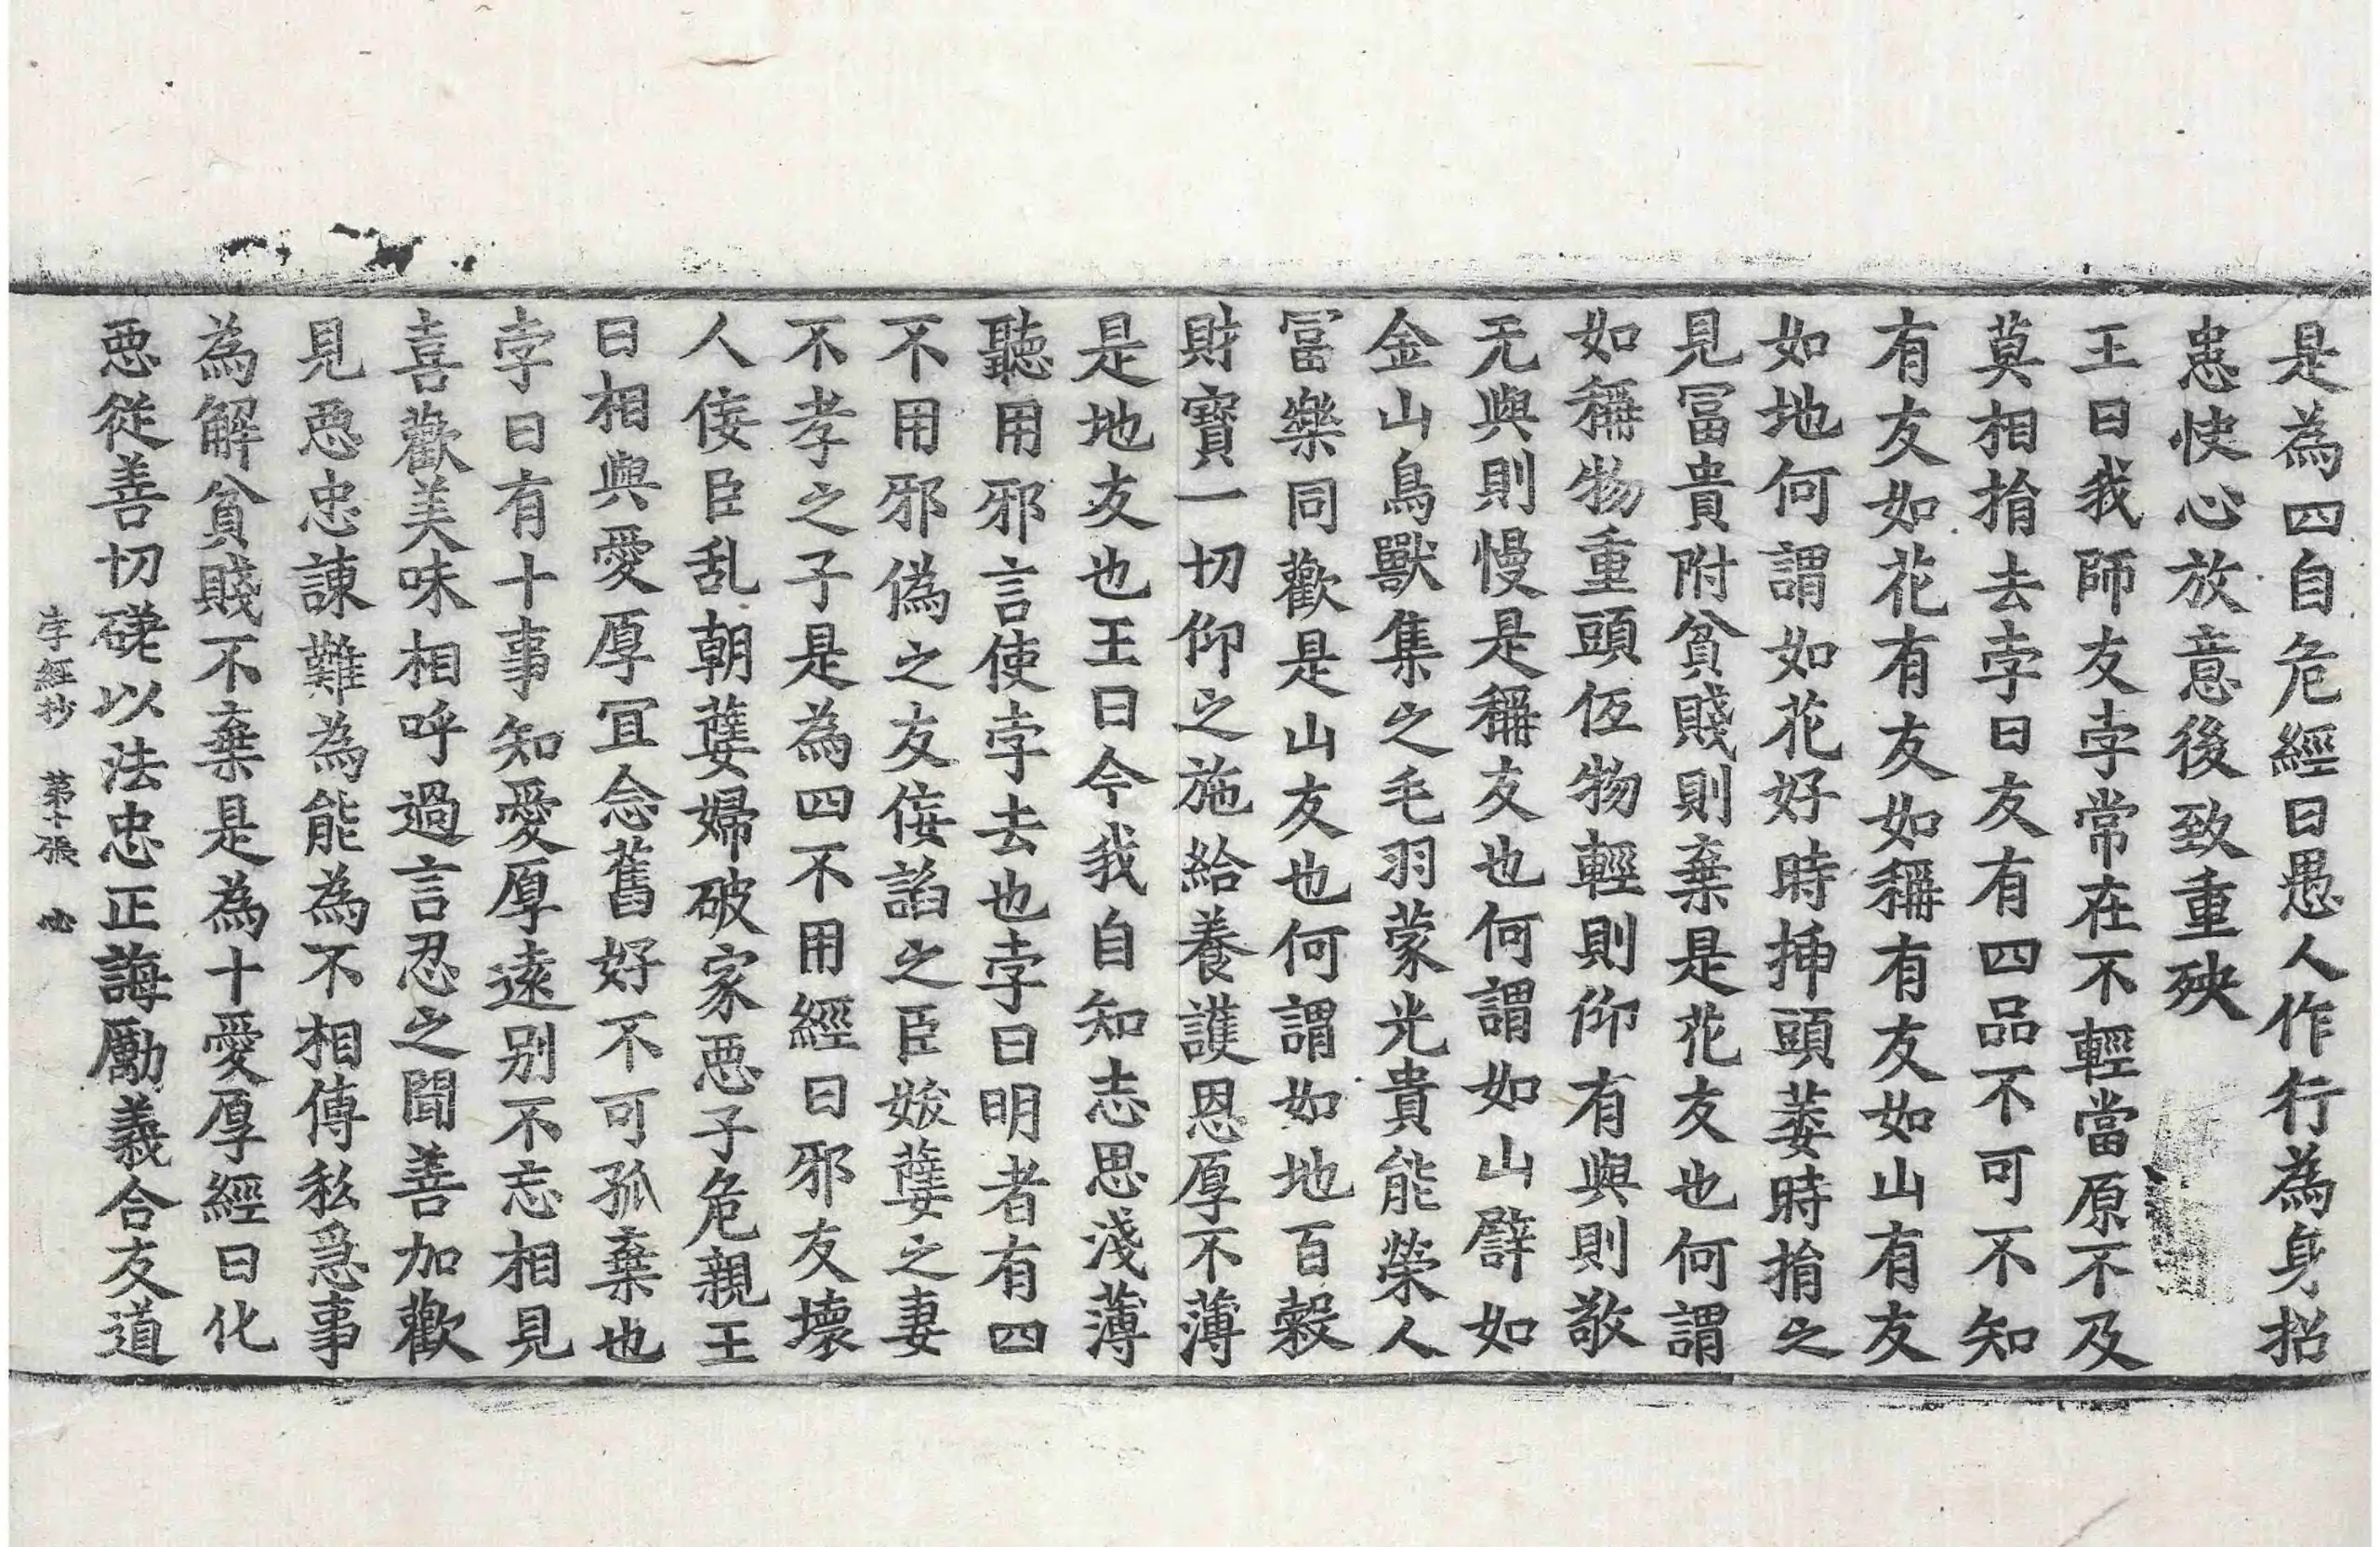 是為四自危經曰愚人作行為身招
患快心放意後致重殃
王曰我師友孛常在不輕當原不及
莫相捐去孛曰友有四品不可不知
有友如花有友如稱有友如山有友
如地何謂如花好時揷頭萎時捐之
見冨貴附貧賤則棄是花友也何謂
如稱物重頭伍物輕則仰有與則敬
无與則慢是稱友也何謂如山譬如
金山鳥獸集之毛羽蒙光貴能榮人
冨樂同歡是山友也何謂如地百穀
財寶一切仰之施給養護恩厚不薄
是地友也王曰今我自知志思淺薄
聽用邪言使孛去也孛曰明者有四
不用邪偽之友侫諂之臣妭㜸之妻
不孝之子是為四不用經曰邪友壞
人侫臣乱朝㜸婦破家惡子危親王
曰相與愛厚冝念舊好不可孤棄也
孛曰有十事知愛厚遠别不忘相見
喜歡美味相呼過言忍之聞善加歡
見惡忠諫難為能為不相傳私急事
為解貧賤不棄是為十愛厚經曰化
惡從善切磋以法忠正誨勵義合友道
孛經抄 第十張 必